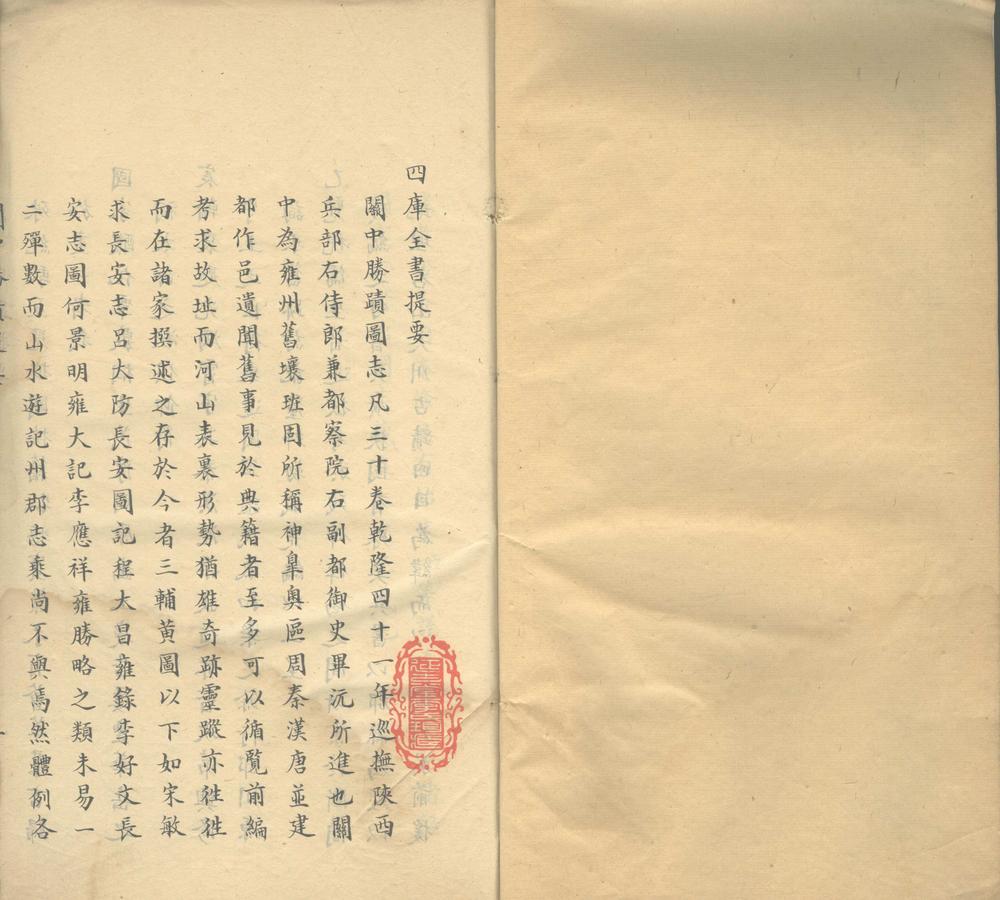 四庫全書提要
關中勝蹟圖志凡三十卷乾隆四十一年巡撫陝西
兵部右侍郎兼都察院右副都御史畢沅所進也關
中為雍州舊壤班固所稱神臯奥區周秦漢唐並建
都作邑遺聞舊事見於典籍者至多可以循覽前編
考求故址而河山表裏形勢猶雄奇跡靈蹤亦往往
而在諸家撰述之存於今者三輔黄圖以下如宋敏
求長安志呂大防長安圖記程大昌雍錄李好文長
安志圖何景明雍大記李應祥雍勝略之類未易一
二殫數而山水遊記州郡志乘尚不與焉然體例各